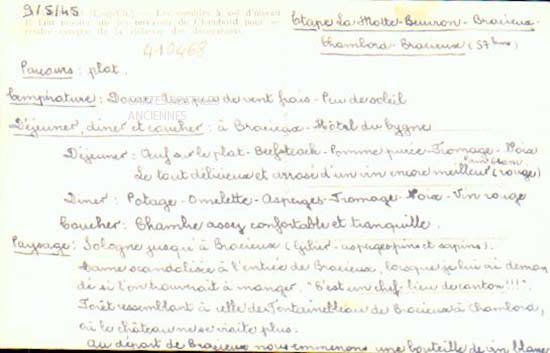 9/5/45
(Loir-&-Ch.) — Les combles à sol d'niveau
il faut monter sur les terrasses de Chambord pour se
rendre compte de la richesse des décorations.
410468
Etape La Motte-Beuvron - Bracieux -
Chambord - Bracieux (57 kms)
Parcours : plat.
Température : Douce de vent frais - Peu de soleil
ANCIENNES
Déjeuner, diner et coucher : à Bracieux - Hôtel du Cygne
Déjeuner : Œuf sur le plat - Beefsteack - Pomme purée - Fromage - Noix
Le tout délicieux et arrosé d'un vin encore meilleur (rouge)
Diner : Potage - Omelette - Asperges - Fromage - Noix - Vin rouge
Coucher : Chambre assez confortable et tranquille.
Paysage : Sologne jusqu'à Bracieux (gibier - asperges pins et sapins).
Dame scandalisée à l'entrée de Bracieux, lorsque je lui ai deman
dé si l'on trouvait à manger. "C'est un chef-lieu de canton !!!".
Forêt ressemblant à celle de Fontainebleau de Bracieux à Chambord,
où le château ne se visite plus.
Au départ de Bracieux nous emmenons une bouteille de vin blanc